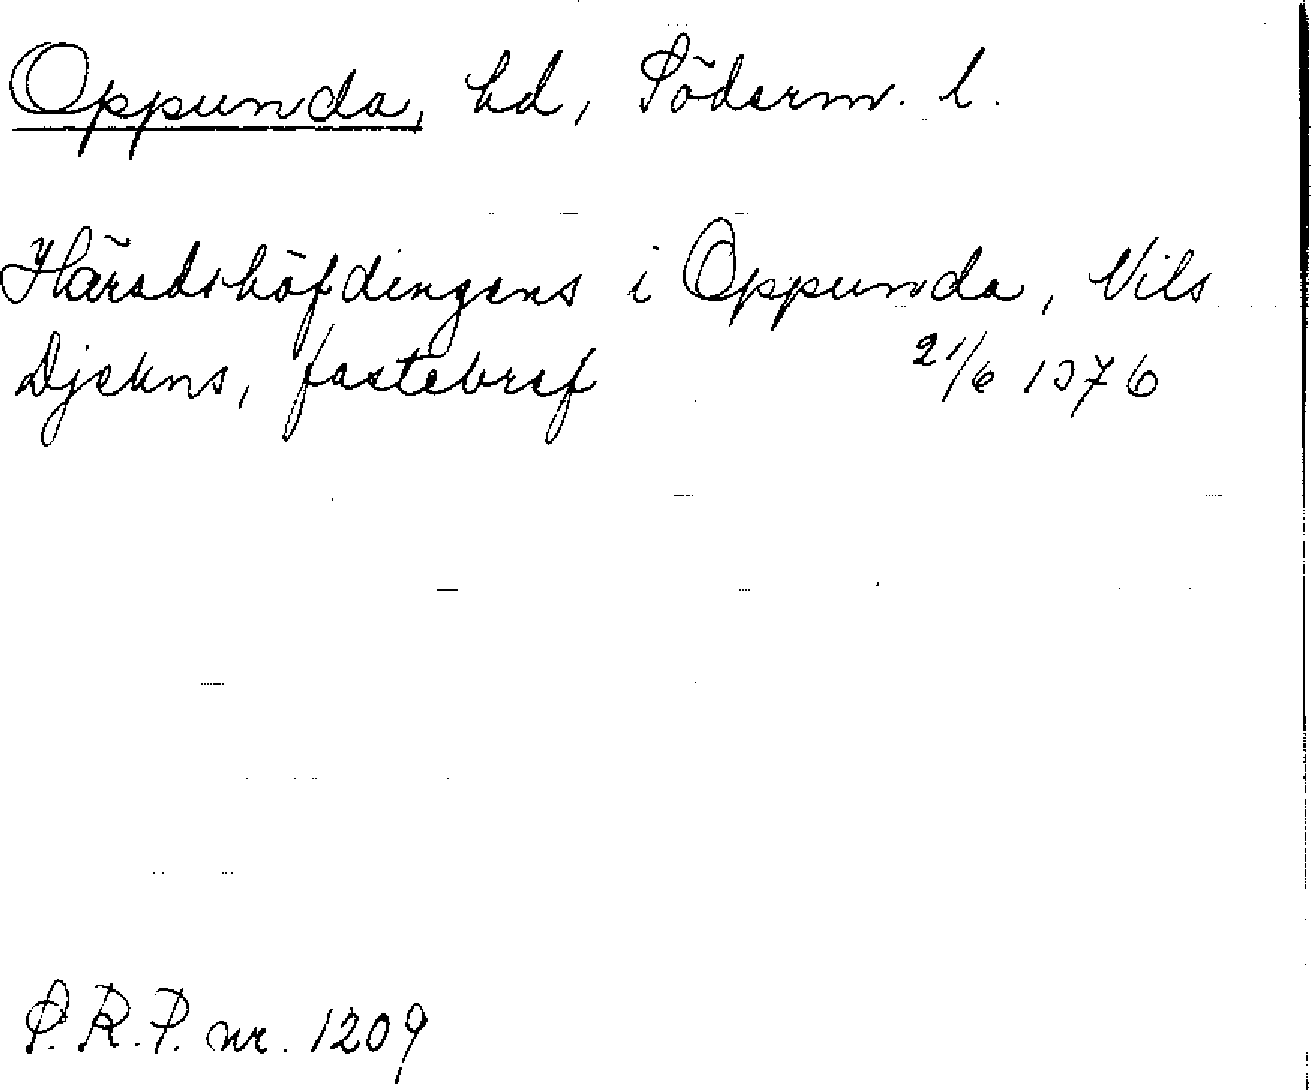 Oppunda, hd, Söderm. l.
Häradshöfdingens i Oppunda, Nils
Djekns, fastebref 21/6 1376
S. R. P. nr. 1209